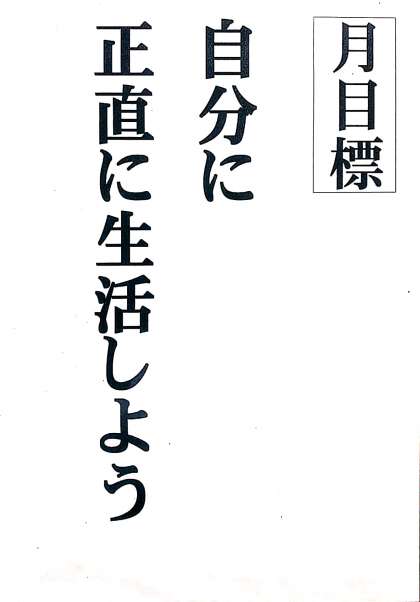 月目標
自分に
正直に生活しよう